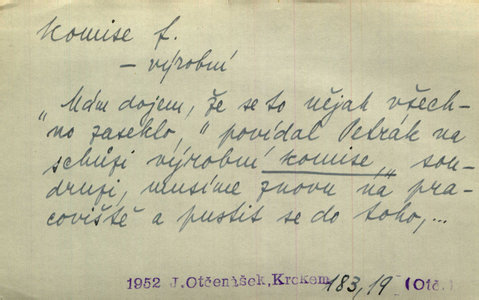 komise f.
– výrobní
„Mám dojem, že se to nějak všech-
no zaseklo," povídal Petrák na
schůzi výrobní komise, „sou-
druzi, musíme znovu na pra-
coviště a pustit se do toho,...
1952 J.Otčenášek,Krokem 183,19 (Otč.)